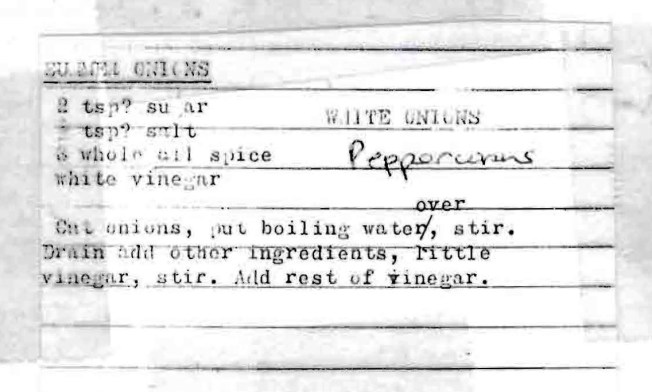 ONIONS
2 tsp? su ar
WHITE ONIONS
tsp? salt
whole all spice
Pepporcurns
white vinegar
over
Cut onions, put boiling water/, stir.
Drain add other ingredients, little
vinegar, stir. Add rest of vinegar.